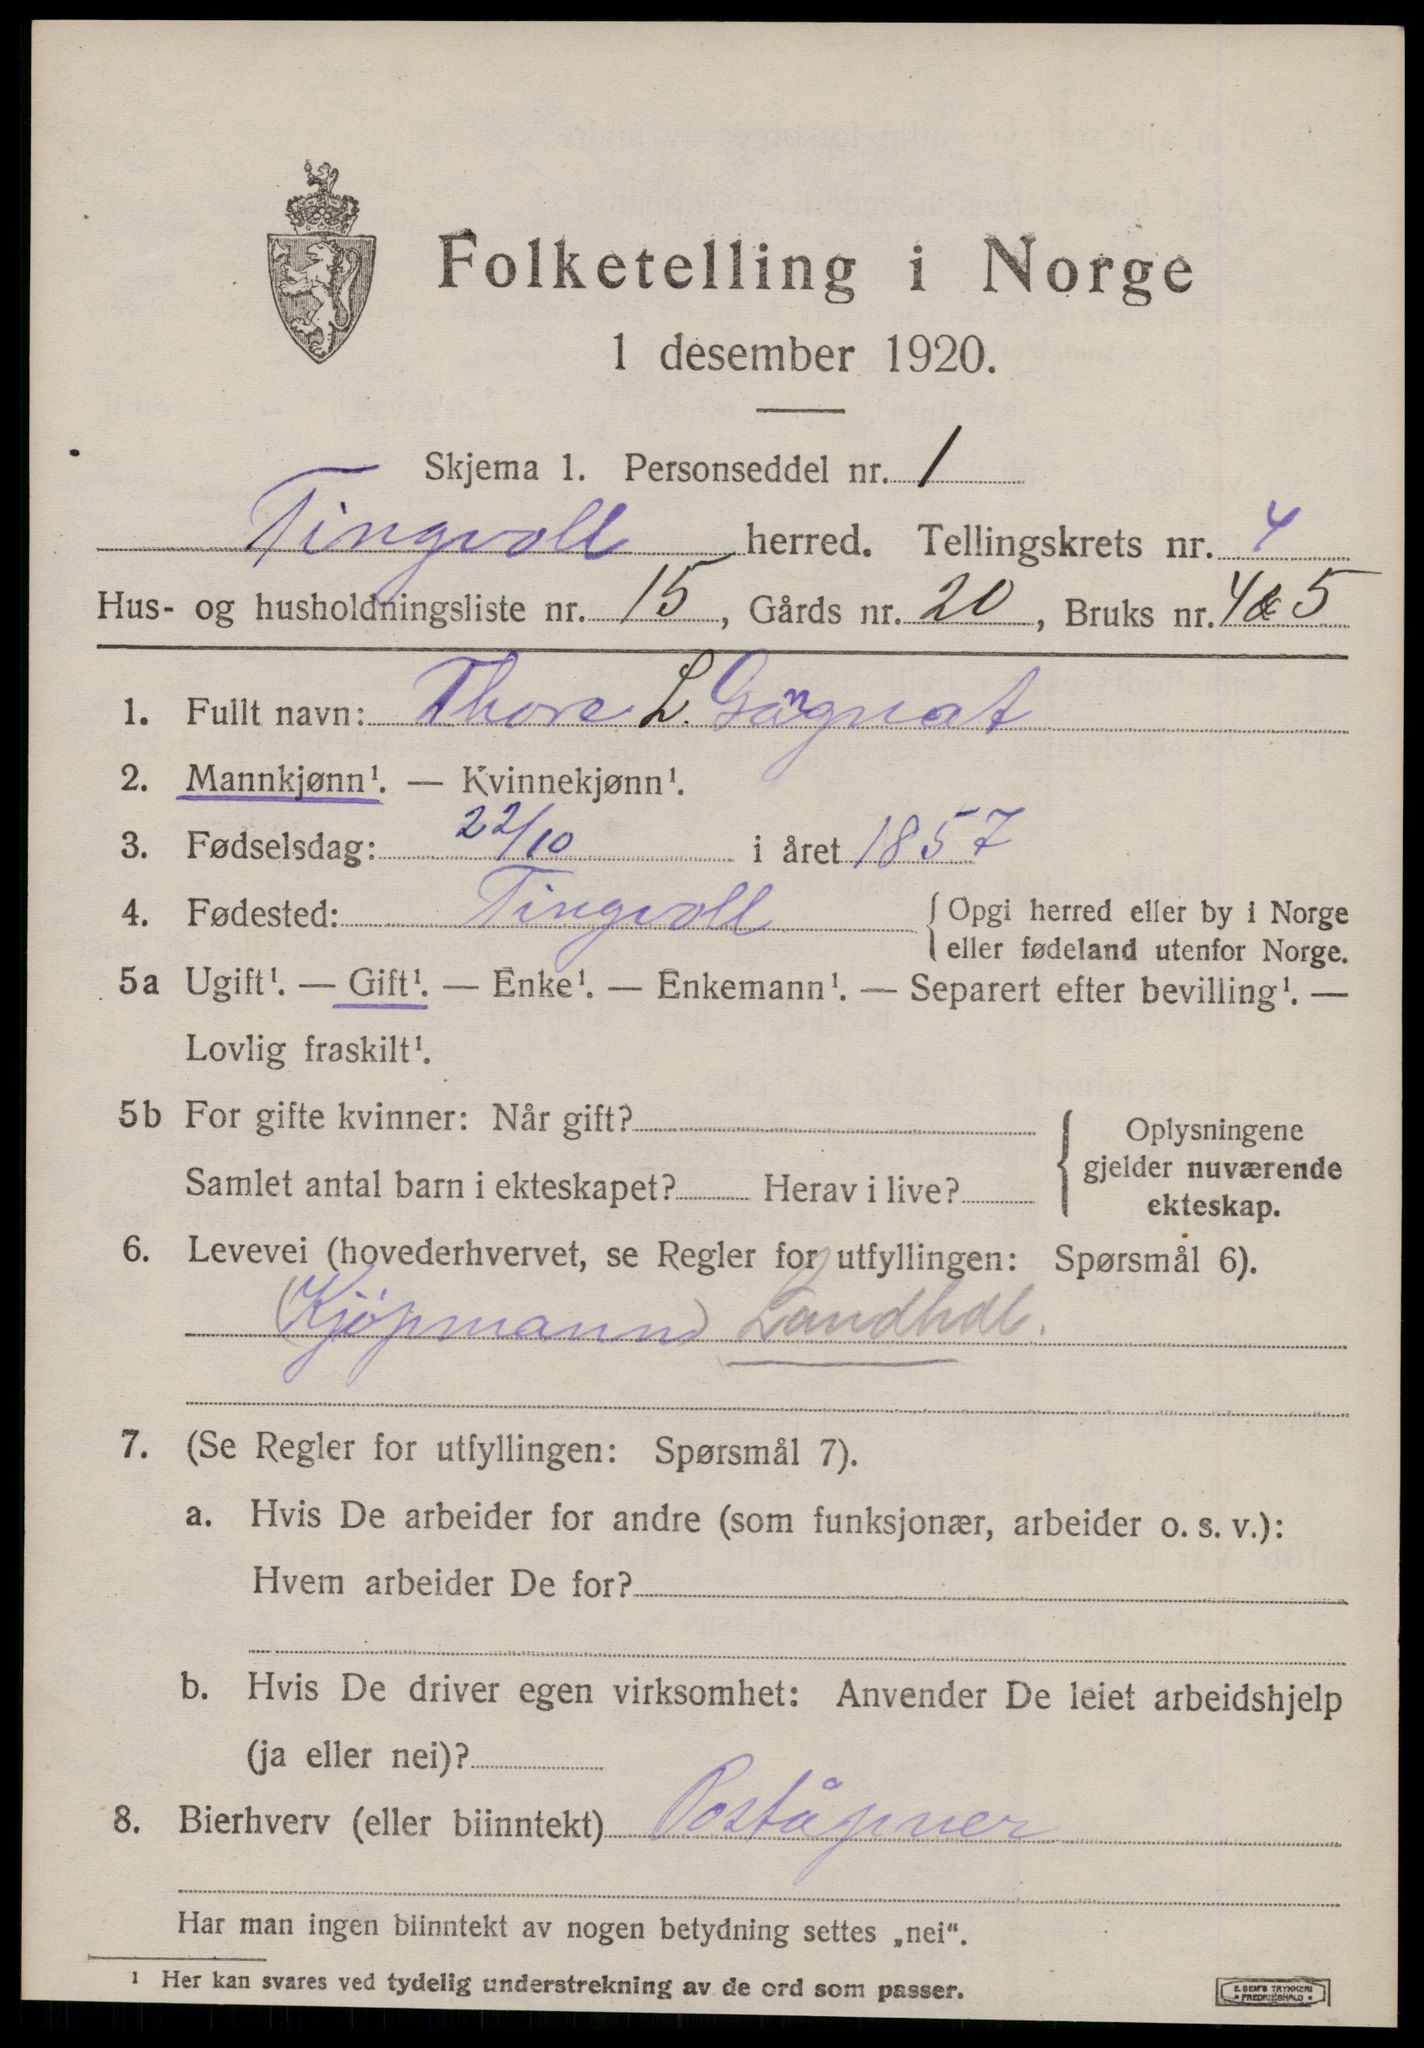 Folketelling i Norge
1 desember 1920.
Skjema 1. Personseddel nr. 1
Tingvoll herred. Tellingskrets nr. 4
Hus- og husholdningsliste nr. 15, Gårds nr. 20, Bruks nr. 4 & 5
1. Fullt navn: Thore L. Gångnat
2. Mannkjønn¹. — Kvinnekjønn¹.
3. Fødselsdag: 22/10 i året 1857
4. Fødested: Tingvoll { Opgi herred eller by i Norge
eller fødeland utenfor Norge.
5a Ugift¹. — Gift¹. — Enke¹. — Enkemann¹. — Separert efter bevilling¹. —
Lovlig fraskilt¹.
5b For gifte kvinner: Når gift?
Samlet antal barn i ekteskapet? Herav i live?
{ Oplysningene
gjelder nuværende
ekteskap.
6. Levevei (hovederhvervet, se Regler for utfyllingen: Spørsmål 6).
(Kjöpmann) Landhdl.
7. (Se Regler for utfyllingen: Spørsmål 7).
a. Hvis De arbeider for andre (som funksjonær, arbeider o. s. v.):
Hvem arbeider De for?
b. Hvis De driver egen virksomhet: Anvender De leiet arbeidshjelp
(ja eller nei)?
8. Bierhverv (eller biinntekt) Poståpner
Har man ingen biinntekt av nogen betydning settes „nei“.
1 Her kan svares ved tydelig understrekning av de ord som passer.
E. SEM'S TRYKKERI
• FREDRIKSHALD •